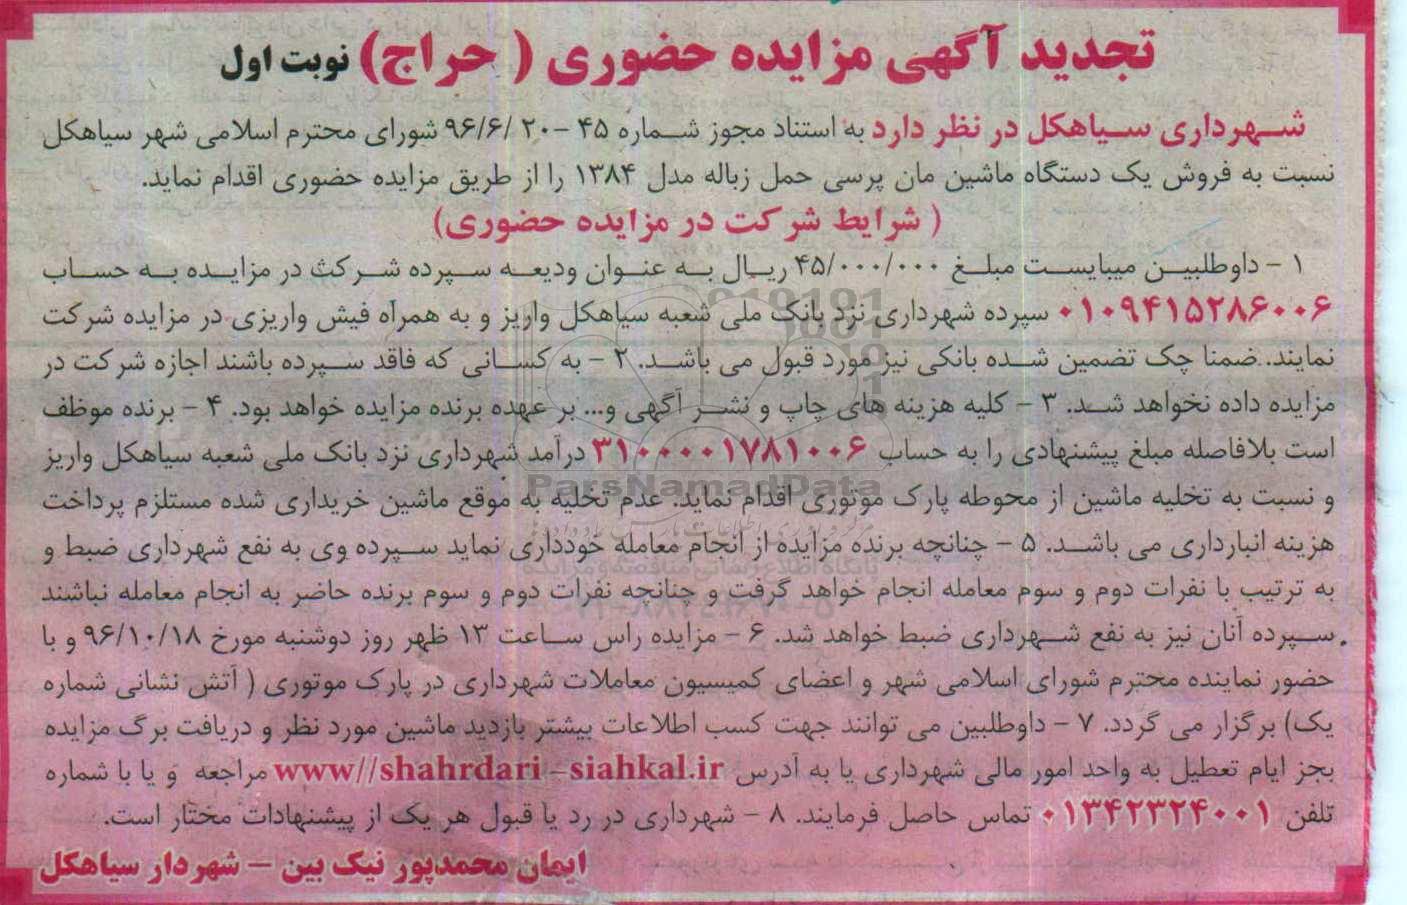 تجدید آگهی مزایده حضوری ( حراج) نوبت اول
شهرداری سیاهکل در نظر دارد به استناد مجوز شماره ۴۵ – ۲۰ /۹۶/۶ شورای محترم اسلامی شهر سیاهکل
نسبت به فروش یک دستگاه ماشین مان پرسی حمل زباله مدل ۱۳۸۴ را از طریق مزایده حضوری اقدام نماید.
( شرایط شرکت در مزایده حضوری)
۱ – داوطلبین میبایست مبلغ ۴۵/۰۰۰/۰۰۰ ریال به عنوان ودیعه سپرده شرکت در مزایده به حساب
۰۱۰۹۴۱۵۲۸۶۰۰۶ سپرده شهرداری نزد بانک ملی شعبه سیاهکل واریز و به همراه فیش واریزی در مزایده شرکت
نمایند. ضمنا چک تضمین شده بانکی نیز مورد قبول می باشد. ۲ – به کسانی که فاقد سپرده باشند اجازه شرکت در
مزایده داده نخواهد شد. ۳ – کلیه هزینه های چاپ و نشر آگهی و... بر عهده برنده مزایده خواهد بود. ۴ – برنده موظف
است بلافاصله مبلغ پیشنهادی را به حساب ۳۱۰۰۰۰۱۷۸۱۰۰۶ درآمد شهرداری نزد بانک ملی شعبه سیاهکل واریز
و نسبت به تخلیه ماشین از محوطه پارک موتوری اقدام نماید. عدم تخلیه به موقع ماشین خریداری شده مستلزم پرداخت
هزینه انبارداری می باشد. ۵ – چنانچه برنده مزایده از انجام معامله خودداری نماید سپرده وی به نفع شهرداری ضبط و
به ترتیب با نفرات دوم و سوم معامله انجام خواهد گرفت و چنانچه نفرات دوم و سوم برنده حاضر به انجام معامله نباشند
سپرده آنان نیز به نفع شهرداری ضبط خواهد شد. ۶ – مزایده راس ساعت ۱۳ ظهر روز دوشنبه مورخ ۹۶/۱۰/۱۸ و با
حضور نماینده محترم شورای اسلامی شهر و اعضای کمیسیون معاملات شهرداری در پارک موتوری ( آتش نشانی شماره
یک) برگزار می گردد. ۷ – داوطلبین می توانند جهت کسب اطلاعات بیشتر بازدید ماشین مورد نظر و دریافت برگ مزایده
بجز ایام تعطیل به واحد امور مالی شهرداری یا به آدرس www//shahrdari –siahkal.ir مراجعه و یا با شماره
تلفن ۰۱۳۴۲۳۲۴۰۰۱ تماس حاصل فرمایند. ۸ – شهرداری در رد یا قبول هر یک از پیشنهادات مختار است.
ایمان محمدپور نیک بین – شهردار سیاهکل
ParsNamadData
پایگاه اطلاع رسانی مناقصه و مزایده